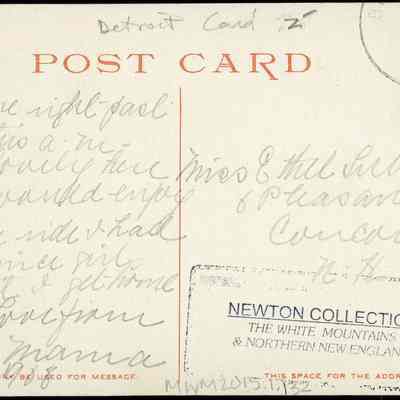 Detroit Card 25
POST CARD
right past
is a m
lovely here
would enjoy
ride I had
nice girl
I get home
Love from
Mama
1918
Miss Ethel
6 Pleasan
Concor
N. H.
NEWTON COLLECTIO
THE WHITE MOUNTAINS
& NORTHERN NEW ENGLAN
BE USED FOR MESSAGE.
THIS SPACE FOR THE ADDR
MWM2015.1.132